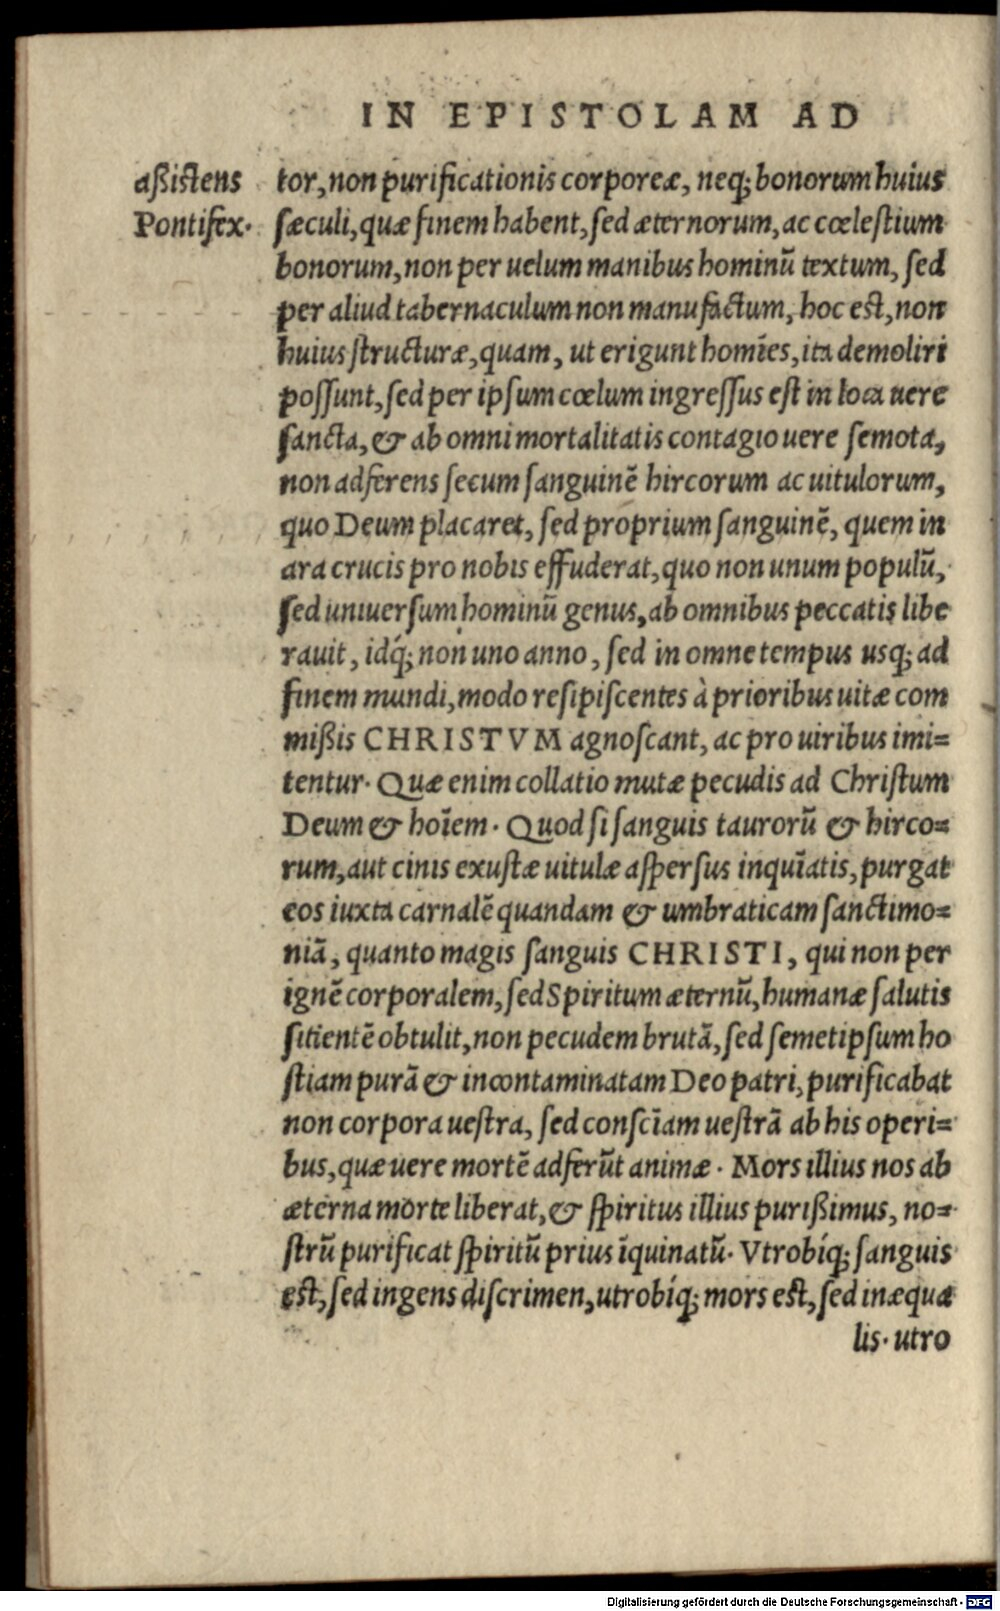 IN EPISTOLAM AD
aßistens
Pontifex.
tor, non purificationis corporeæ, neq; bonorum huius
sæculi, quæ finem habent, sed æternorum, ac cœlestium
bonorum, non per uelum manibus hominū textum, sed
per aliud tabernaculum non manufactum, hoc est, non
huius structuræ, quam, ut erigunt homīes, ita demoliri
possunt, sed per ipsum cœlum ingressus est in loca uere
sancta, & ab omni mortalitatis contagio uere semota,
non adferens secum sanguinē hircorum ac uitulorum,
quo Deum placaret, sed proprium sanguinē, quem in
ara crucis pro nobis effuderat, quo non unum populū,
sed uniuersum hominū genus, ab omnibus peccatis libe
rauit, idq́; non uno anno, sed in omne tempus usq; ad
finem mundi, modo resipiscentes à prioribus uitæ com
mißis CHRISTVM agnoscant, ac pro uiribus imi=
tentur. Quæ enim collatio mutæ pecudis ad Christum
Deum & hoīem. Quod si sanguis taurorū & hirco=
rum, aut cinis exustæ uitulæ aspersus inquīatis, purgat
eos iuxta carnalē quandam & umbraticam sanctimo=
niā, quanto magis sanguis CHRISTI, qui non per
ignē corporalem, sed Spiritum æternū, humanæ salutis
sitientē obtulit, non pecudem brutā, sed semetipsum ho
stiam purā & incontaminatam Deo patri, purificabat
non corpora uestra, sed conscīam uestrā ab his operi=
bus, quæ uere mortē adferūt animæ. Mors illius nos ab
æterna morte liberat, & spiritus illius purißimus, no=
strū purificat spiritū prius īquinatū. Vtrobíq; sanguis
est, sed ingens discrimen, utrobíq; mors est, sed inæqua
lis. utro
Digitalisierung gefördert durch die Deutsche Forschungsgemeinschaft - DFG